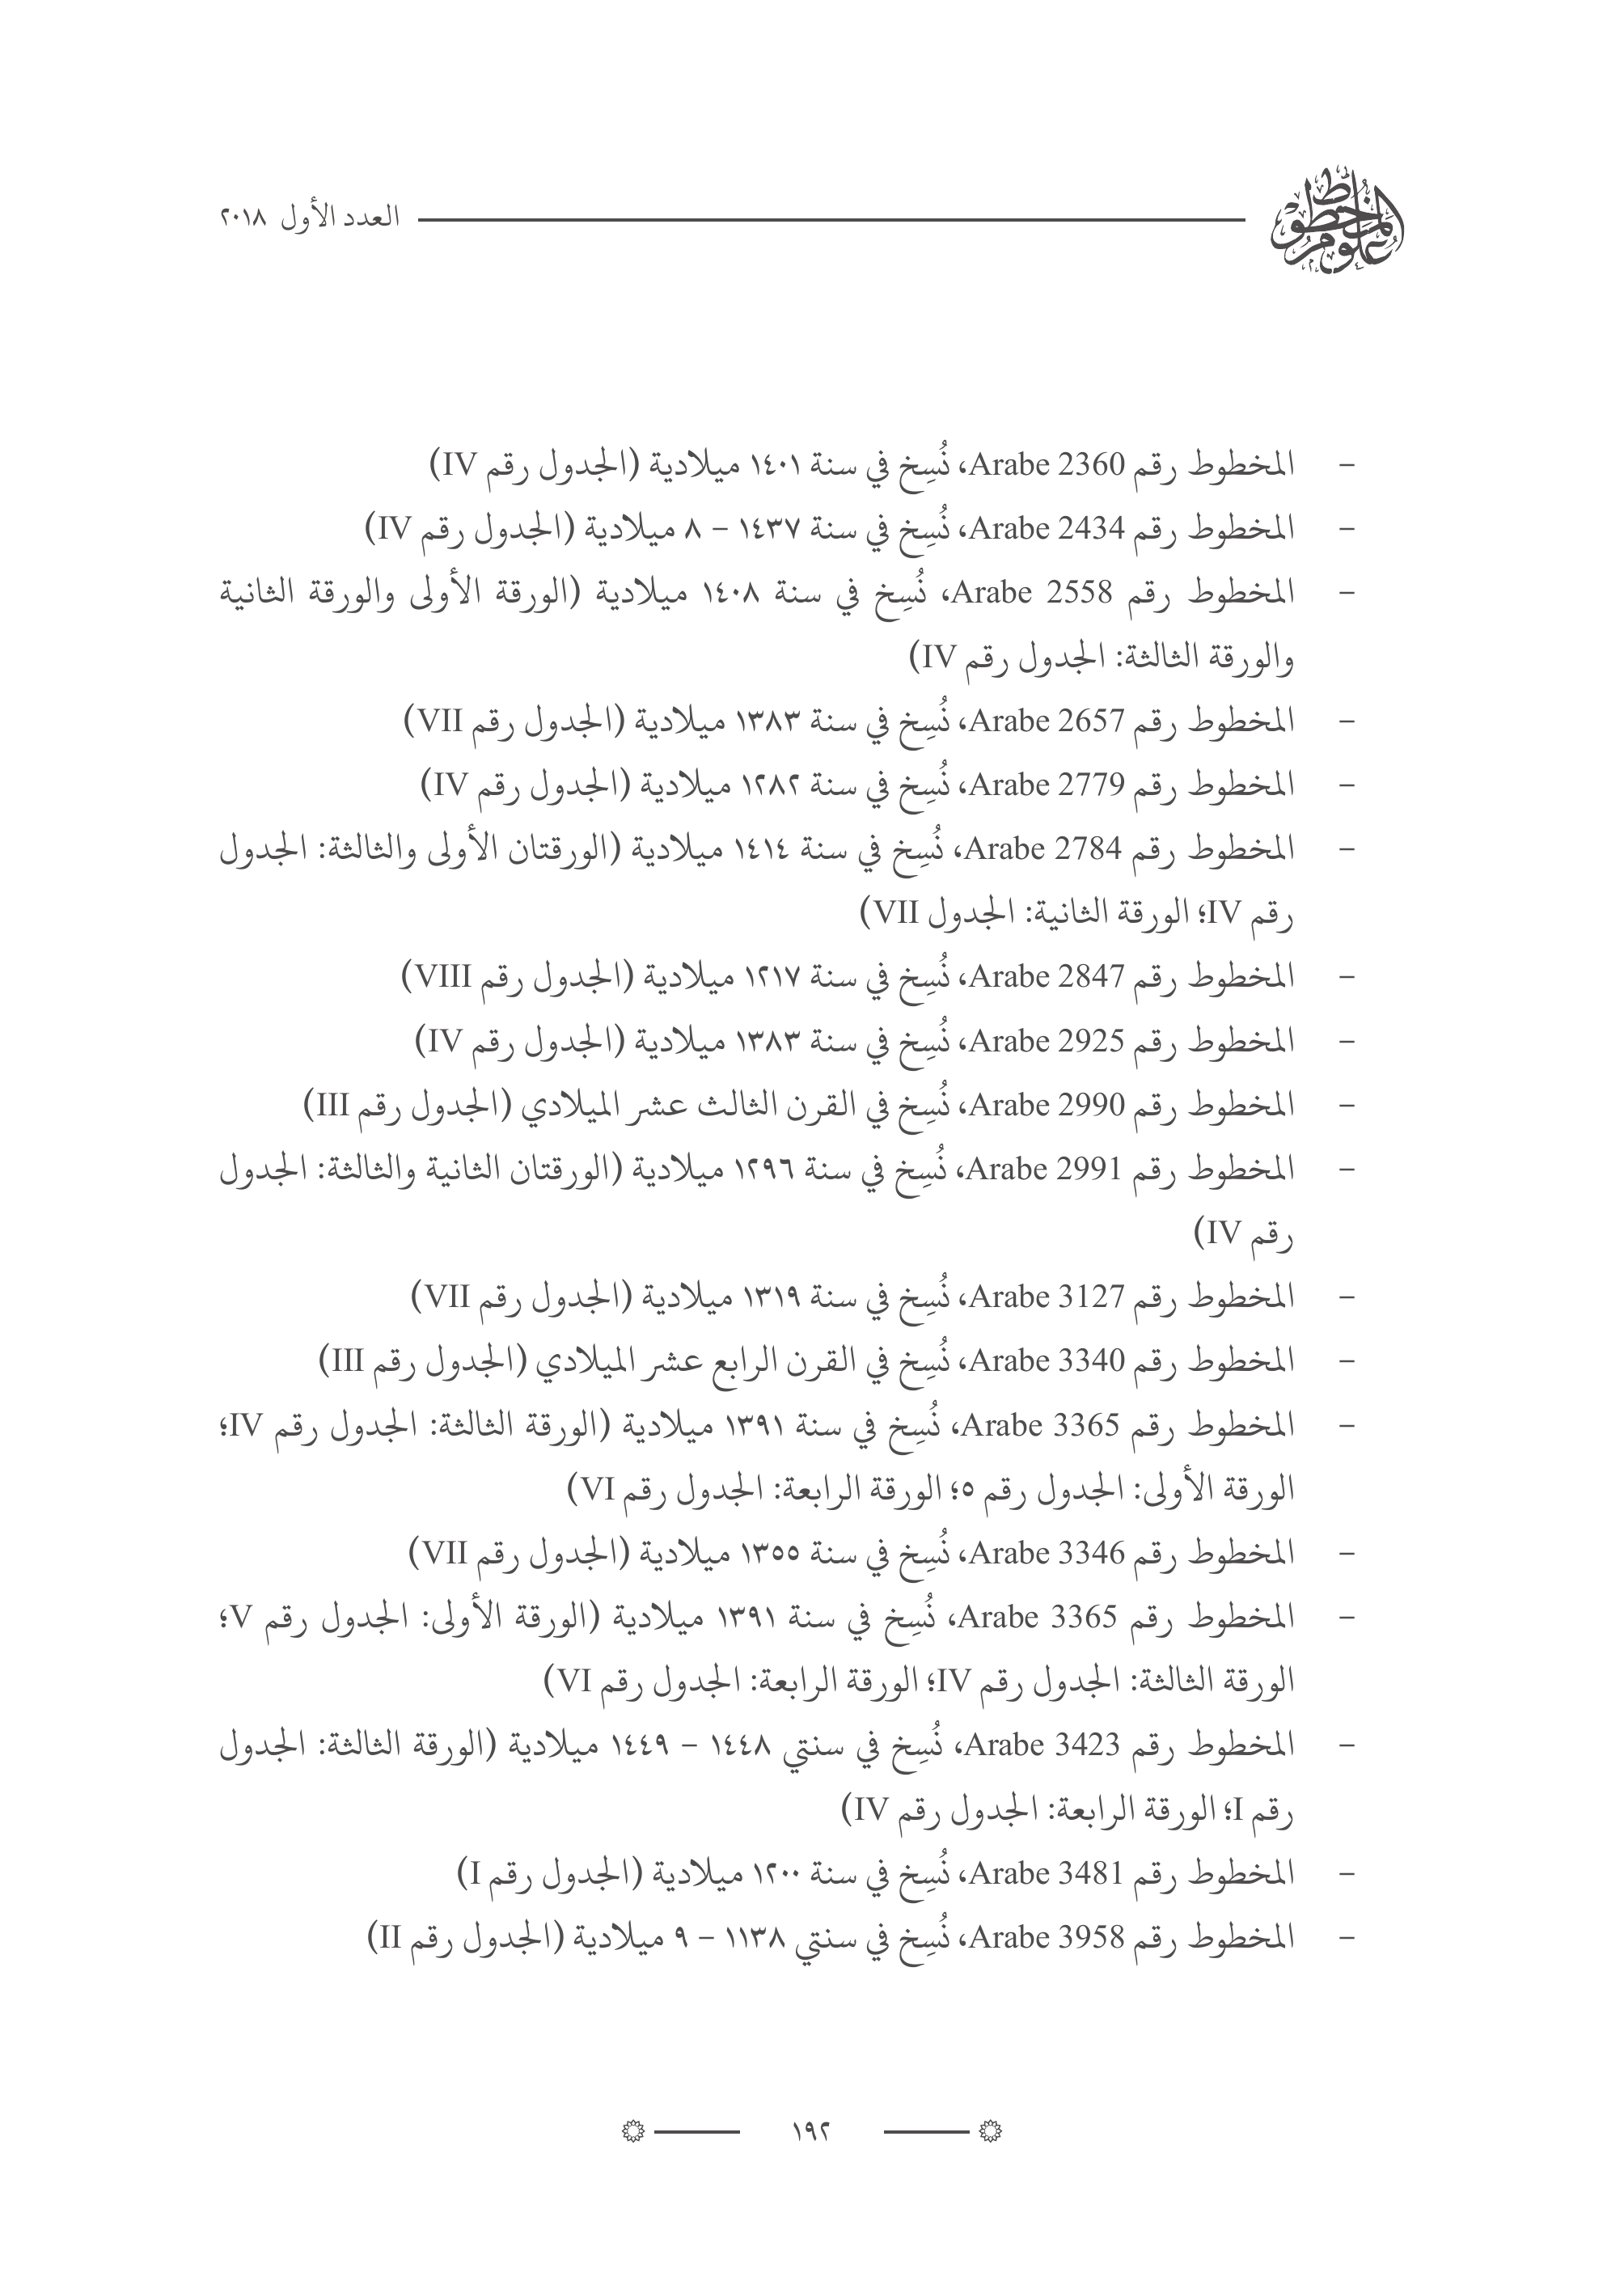 علوم المخطوط
العدد الأول ٢٠١٨
- المخطوط رقم Arabe 2360، نُسِخ في سنة ١٤٠١ ميلادية (الجدول رقم IV)
- المخطوط رقم Arabe 2434، نُسِخ في سنة ١٤٣٧ – ٨ ميلادية (الجدول رقم IV)
- المخطوط رقم Arabe 2558، نُسِخ في سنة ١٤٠٨ ميلادية (الورقة الأولى والورقة الثانية
والورقة الثالثة: الجدول رقم IV)
- المخطوط رقم Arabe 2657، نُسِخ في سنة ١٣٨٣ ميلادية (الجدول رقم VII)
- المخطوط رقم Arabe 2779، نُسِخ في سنة ١٢٨٢ ميلادية (الجدول رقم IV)
- المخطوط رقم Arabe 2784، نُسِخ في سنة ١٤١٤ ميلادية (الورقتان الأولى والثالثة: الجدول
رقم IV؛ الورقة الثانية: الجدول VII)
- المخطوط رقم Arabe 2847، نُسِخ في سنة ١٢١٧ ميلادية (الجدول رقم VIII)
- المخطوط رقم Arabe 2925، نُسِخ في سنة ١٣٨٣ ميلادية (الجدول رقم IV)
- المخطوط رقم Arabe 2990، نُسِخ في القرن الثالث عشر الميلادي (الجدول رقم III)
- المخطوط رقم Arabe 2991، نُسِخ في سنة ١٢٩٦ ميلادية (الورقتان الثانية والثالثة: الجدول
رقم IV)
- المخطوط رقم Arabe 3127، نُسِخ في سنة ١٣١٩ ميلادية (الجدول رقم VII)
- المخطوط رقم Arabe 3340، نُسِخ في القرن الرابع عشر الميلادي (الجدول رقم III)
- المخطوط رقم Arabe 3365، نُسِخ في سنة ١٣٩١ ميلادية (الورقة الثالثة: الجدول رقم IV؛
الورقة الأولى: الجدول رقم ٥؛ الورقة الرابعة: الجدول رقم VI)
- المخطوط رقم Arabe 3346، نُسِخ في سنة ١٣٥٥ ميلادية (الجدول رقم VII)
- المخطوط رقم Arabe 3365، نُسِخ في سنة ١٣٩١ ميلادية (الورقة الأولى: الجدول رقم V؛
الورقة الثالثة: الجدول رقم IV؛ الورقة الرابعة: الجدول رقم VI)
- المخطوط رقم Arabe 3423، نُسِخ في سنتي ١٤٤٨ – ١٤٤٩ ميلادية (الورقة الثالثة: الجدول
رقم I؛ الورقة الرابعة: الجدول رقم IV)
- المخطوط رقم Arabe 3481، نُسِخ في سنة ١٢٠٠ ميلادية (الجدول رقم I)
- المخطوط رقم Arabe 3958، نُسِخ في سنتي ١١٣٨ – ٩ ميلادية (الجدول رقم II)
١٩٢